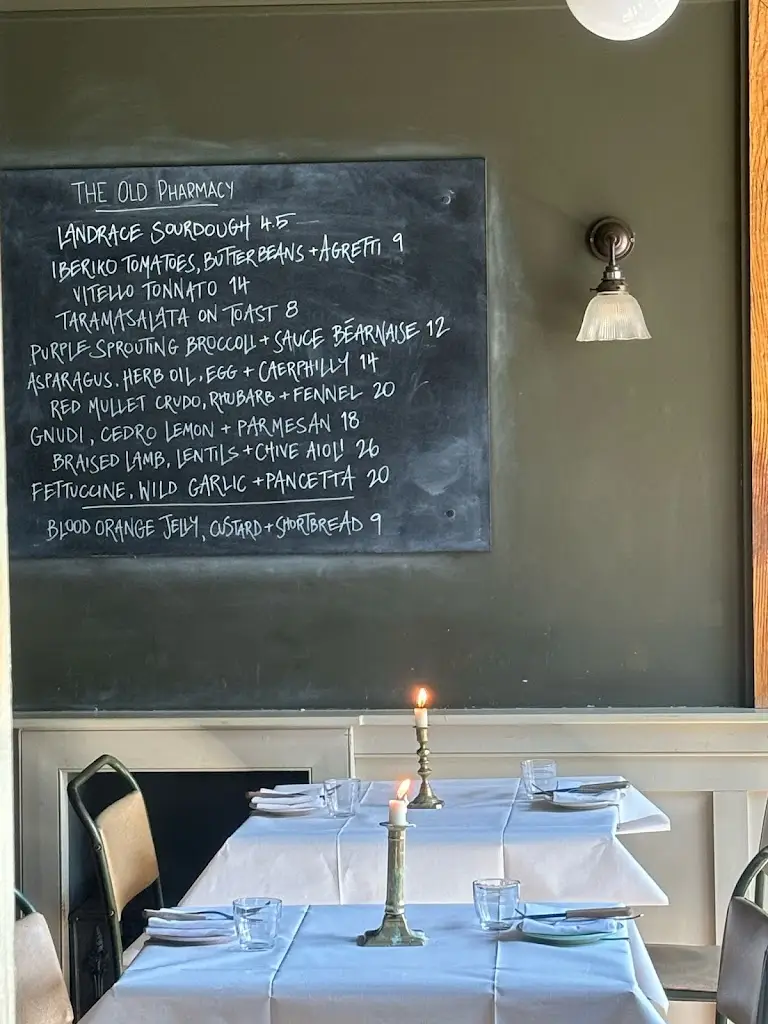 THE OLD PHARMACY
LANDRACE SOURDOUGH 4.5
IBERIKO TOMATOES, BUTTERBEANS + AGRETTI 9
VITELLO TONNATO 14
TARAMASALATA ON TOAST 8
PURPLE SPROUTING BROCCOLI + SAUCE BÉARNAISE 12
ASPARAGUS, HERB OIL, EGG + CAERPHILLY 14
RED MULLET CRUDO, RHUBARB + FENNEL 20
GNUDI, CEDRO LEMON + PARMESAN 18
BRAISED LAMB, LENTILS + CHIVE AIOLI 26
FETTUCCINE, WILD GARLIC + PANCETTA 20
BLOOD ORANGE JELLY, CUSTARD + SHORTBREAD 9